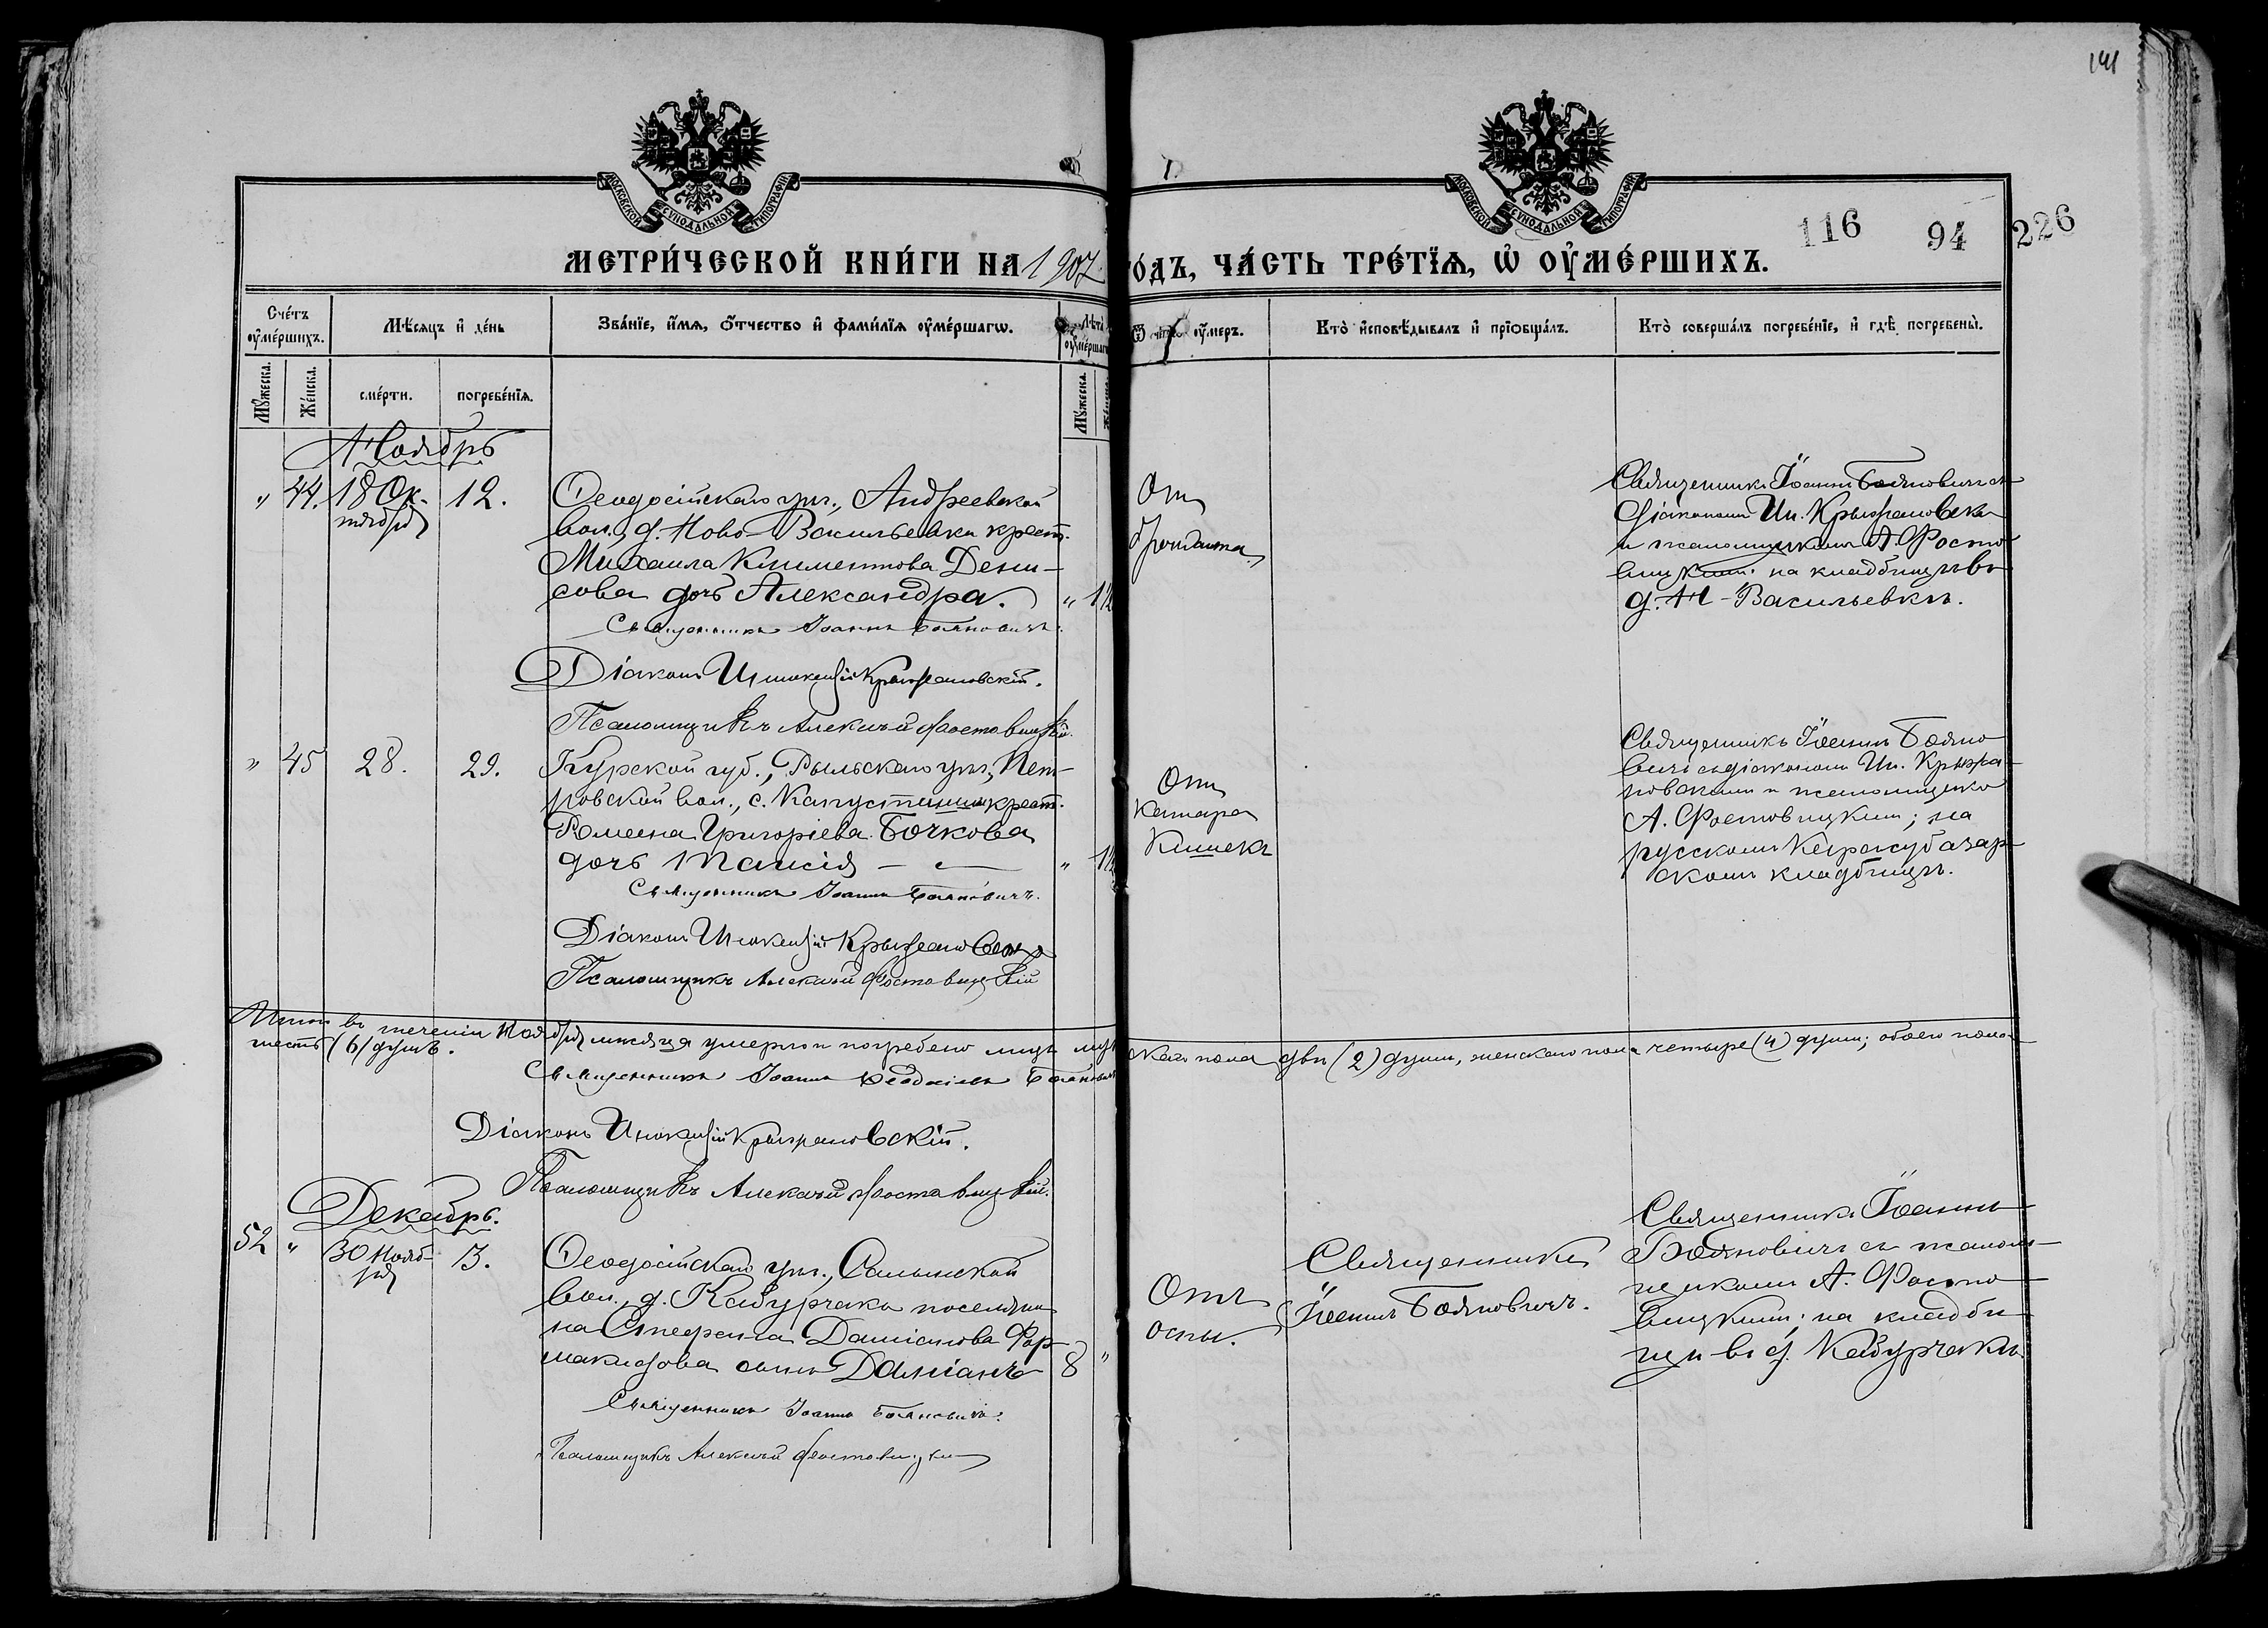 141
МОСКОВСКОЙ СѴНОДАЛЬНОЙ ТИПОГРАФІИ
МОСКОВСКОЙ СѴНОДАЛЬНОЙ ТИПОГРАФІИ
116 94 226
МЕТРИ́ЧЕСКОЙ КНИ́ГИ НА 1907 ГО́ДЪ, ЧА́СТЬ ТРЕ́ТЇѦ, Ѡ҆ ОУ҆МЕ́РШИХЪ.
Сче́тъ оу҆ме́ршихъ.
Мѣ́сяцъ и҆ де́нь
Зва́нїе, и҆́мѧ, ѻ҆́тчество и҆ фами́лїѧ оу҆ме́ршагѡ.
Лѣ́та оу҆ме́ршагѡ
Ѿ чегѡ̀ оу҆́меръ.
Кто̀ и҆сповѣ́дывалъ и҆ прїобща́лъ.
Кто̀ соверша́лъ погребе́нїе, и҆ гдѣ̀ погребены̀.
Му́жеска.
Же́нска.
сме́рти.
погребе́нїѧ.
Му́жеска.
Же́нска.
Ноябрь
" 44. 18 Ок-
тября
12.
Ѳеодосійскаго ууз., Андреевской
вол., д. Ново-Васильевки крест.
Михаила Климентова Дени-
сова дочь Александра. "
Священникъ Іоаннъ Бояновичъ.
Діаконъ Инокентій Крыжановскій.
Псаломщикъ Алексѣй Фостовицкій.
От
бронхита
Священникъ Іоаннъ Бояновичъ съ
діакономъ Ин. Крыжановски
и псаломщикомъ А. Фосто-
вицким: на кладбищѣ въ
д. Н-Васильевкѣ.
" 45 28. 29.
Курской губ., Рыльскаго уѣз., Пет-
ровской вол., с. Капустина крест.
Романа Григоріева Бочкова
дочь Таисія — "
Священникъ Іоаннъ Бояновичъ.
Діаконъ Инокентій Крыжановскій
Псаломщикъ Алексѣй Фостовицкій
От
катара
кишекъ
Священникъ Іоаннъ Бояно
вичъ съ діакономъ Ин. Крыжа-
новскимъ и псаломщико
А. Фостовицким; на
русскомъ Карасубазар-
скомъ кладбищѣ.
Итого въ теченіи Ноября мѣсяца умерло и погребено лицъ мужскаго пола двѣ (2) души, женскаго пола четыре (4) души; обоего пола
шесть (6) душъ.
Священникъ Іоаннъ Бояновичъ
Діаконъ Инокентій Крыжановскій.
Псаломщикъ Алексѣй Фостовицкій.
Декабрь.
52 " 30 Нояб-
ря
3.
Ѳеодосійскаго уѣз., Салынской
вол., д. Кабурчака поселяни
на Стефана Даміанова Фар
макидова сынъ Даміанъ 8 "
Священникъ Іоаннъ Бояновичъ.
Псаломщикъ Алексѣй Фостовицкій
Отъ
оспы.
Священникъ
Іоаннъ Бояновичъ.
Священникъ Іоаннъ
Бояновичъ съ псалом-
щикомъ А. Фосто
вицкимъ; на кладби
щѣ въ д. Кабурчакѣ.